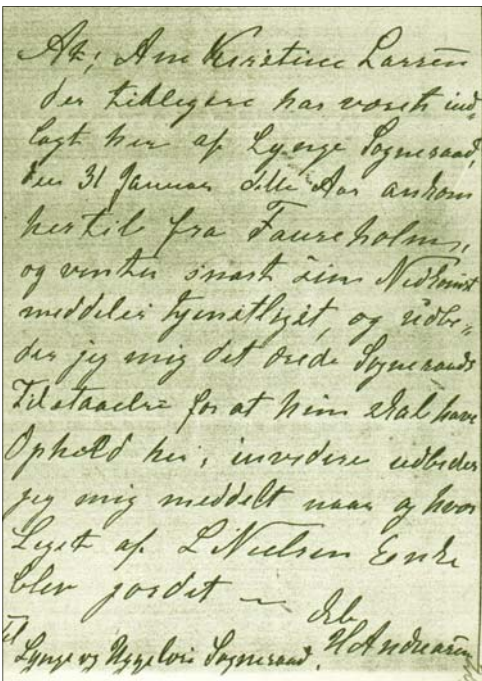 At, Ane Kirstine Larsen
der tidligere har været ind-
lagt her af Lynge Sogneraad,
den 31 Januar dette Aar ankom
hertil fra Faureholm,
og venter snart sin Nedkomst
meddeles tjenstligst, og udbe-
der jeg mig det ærede Sogneraads
Tilstaaelse for at hun skal have
Ophold her, invidere udbeder
jeg mig meddelt naar og hvor
Liget af L Nielsen Enke
blev jordet —
Erb
H Andreasen
Til
Lynge og Uggeløse Sogneraad.